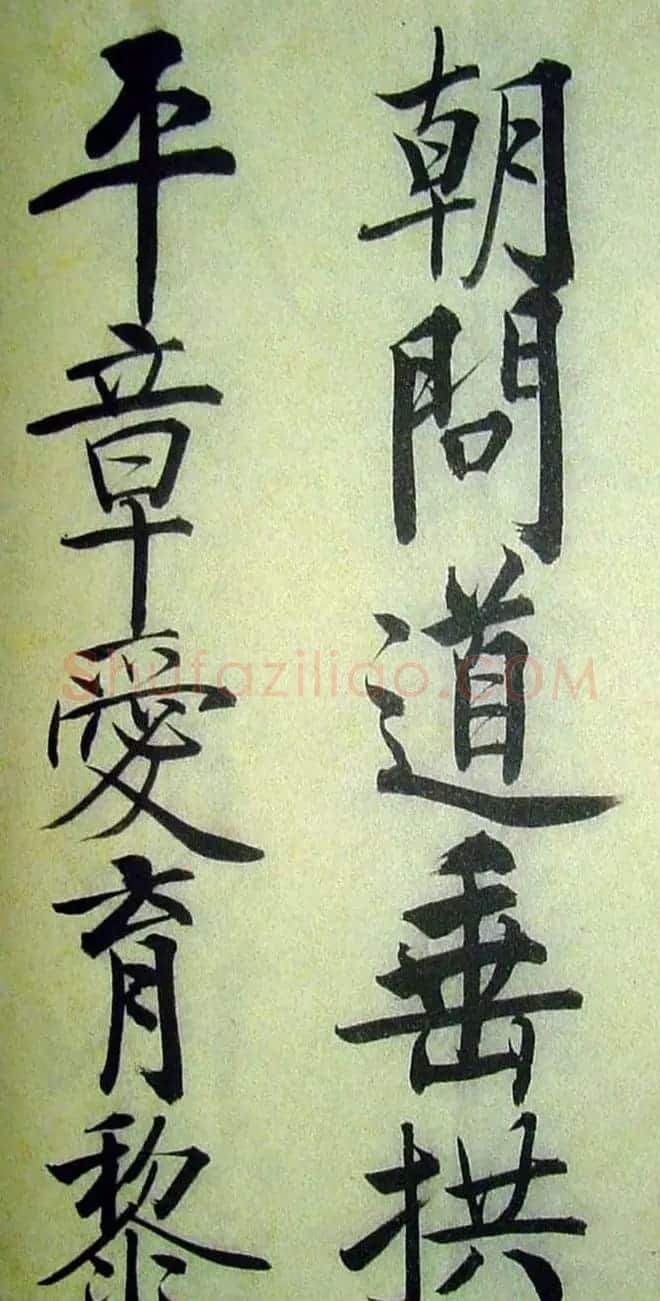 朝問道垂拱
平章愛育黎
Shufaziliao.COM